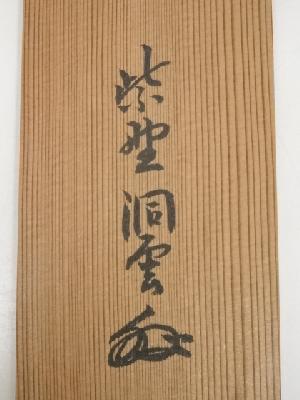 紫野 洞雲